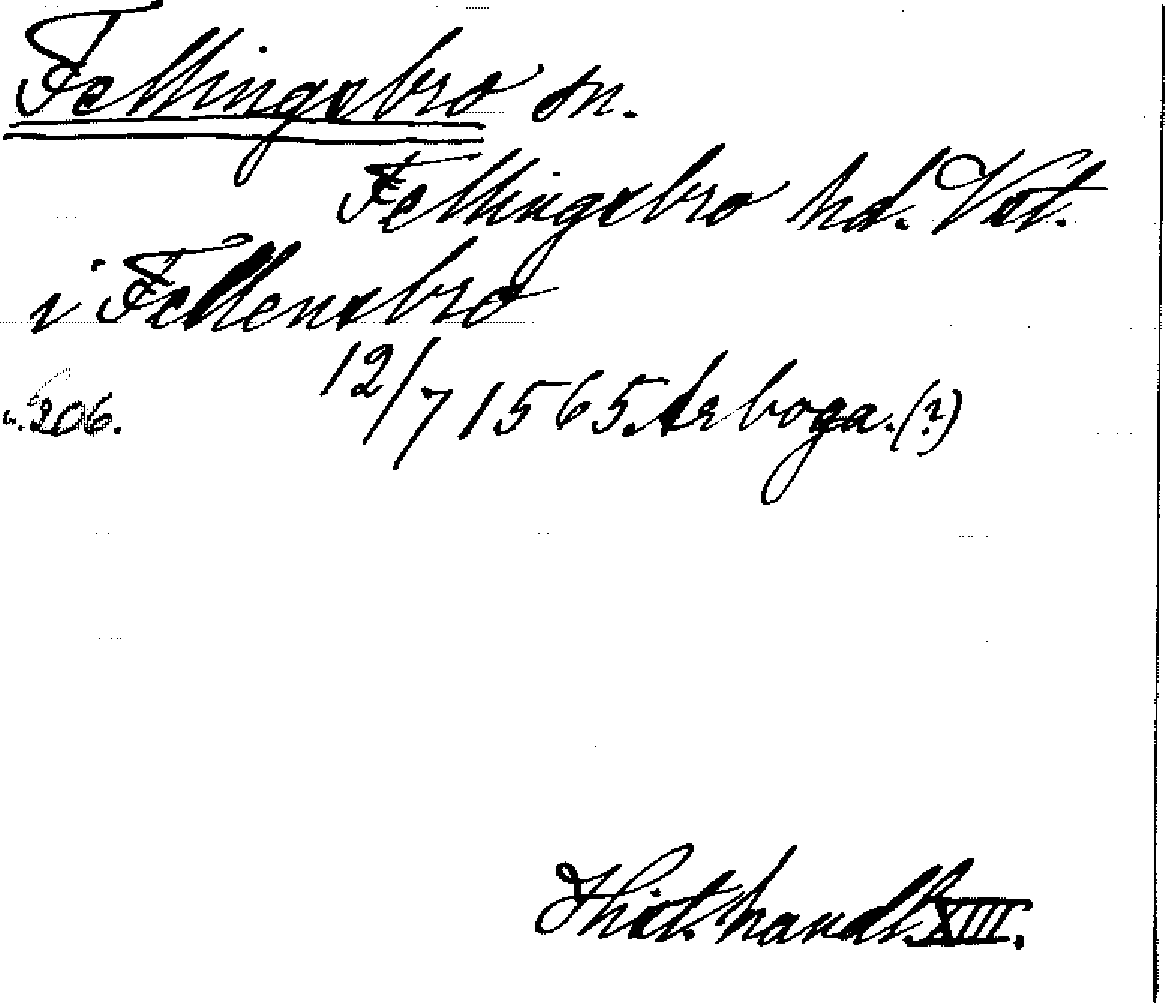 Fellingsbro sn.
Fellingsbro hd. Vst.
i Fellensbro
s. 206. 12/7 1565. Arboga. (?)
Hist. handl. XIII.